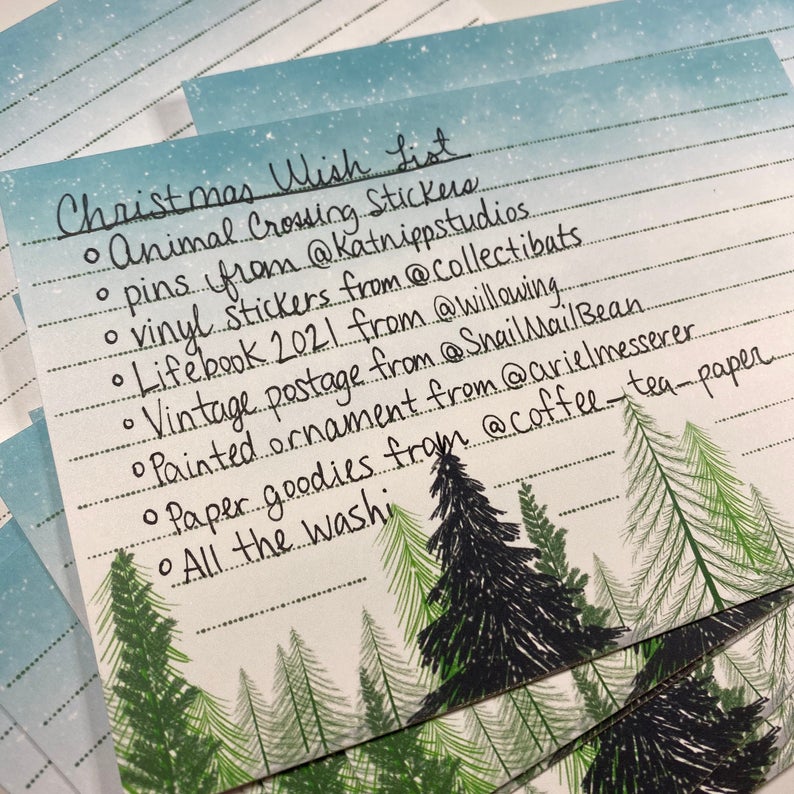 Christmas Wish List
Animal Crossing Stickers
pins from @Katnippstudios
vinyl stickers from @collectibats
Lifebook 2021 from @willowing
Vintage postage from @SnailMailBean
Painted ornament from @arielmesserer
Paper goodies from @coffee_tea_paper
All the washi